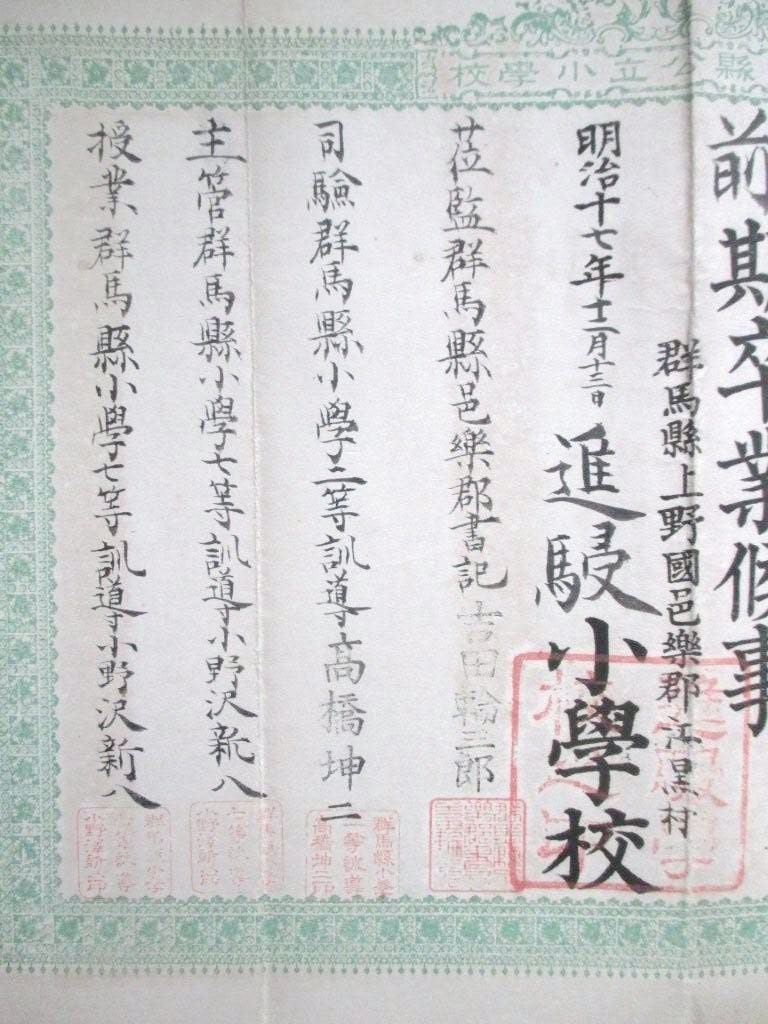 縣公立小學校
前期卒業候事
群馬縣上野國邑樂郡江黒村
進駸小學校
明治十七年十二月十三日
莅監群馬縣邑樂郡書記吉田輪三郎
司驗群馬縣小學二等訓導高橋坤二
主管群馬縣小學七等訓導小野沢新八
授業群馬縣小學七等訓導小野沢新八